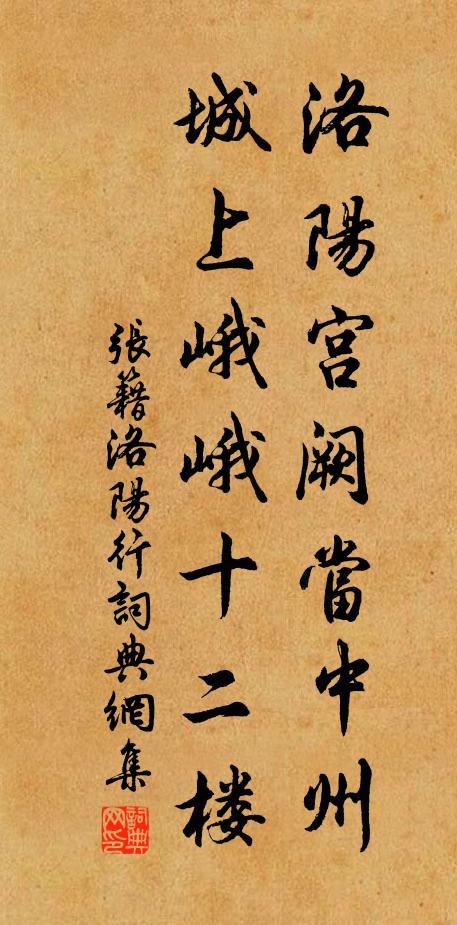 洛陽宫阙當中州
城上峨峨十二楼
張籍洛陽行詞典網集
詞典网印